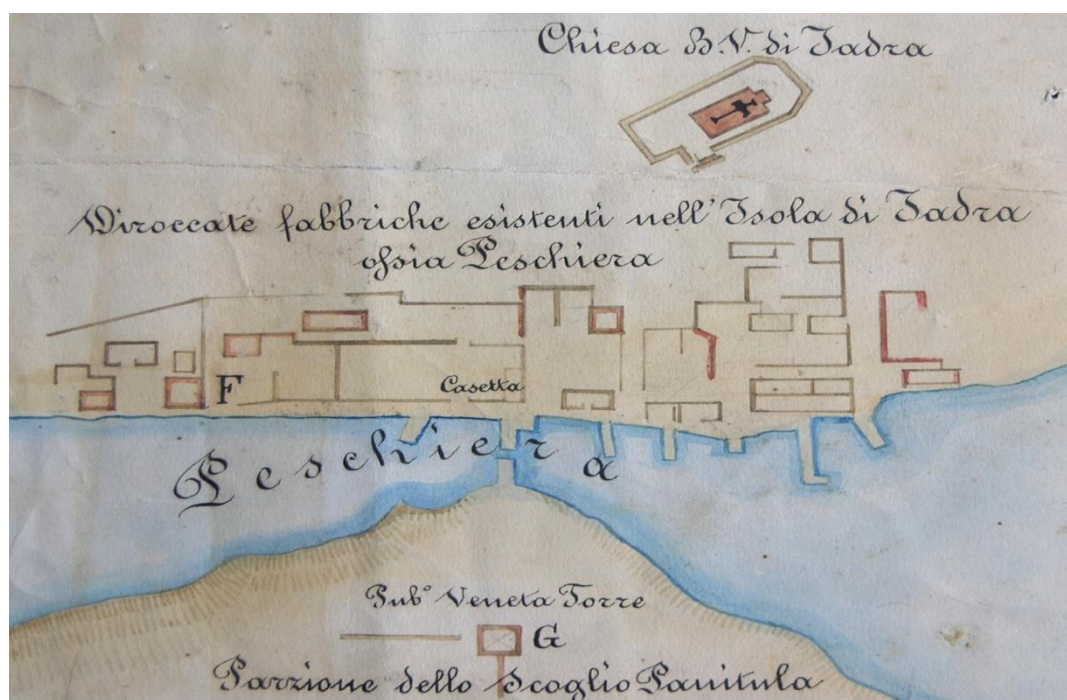 Chiesa B.V. di Tadra
Diroccate fabbriche esistenti nell'Isola di Tadra
ossia Peschiera
Casetta
F
Peschiera
Pub.º Veneta Torre
G
Parzione dello Scoglio Panitula